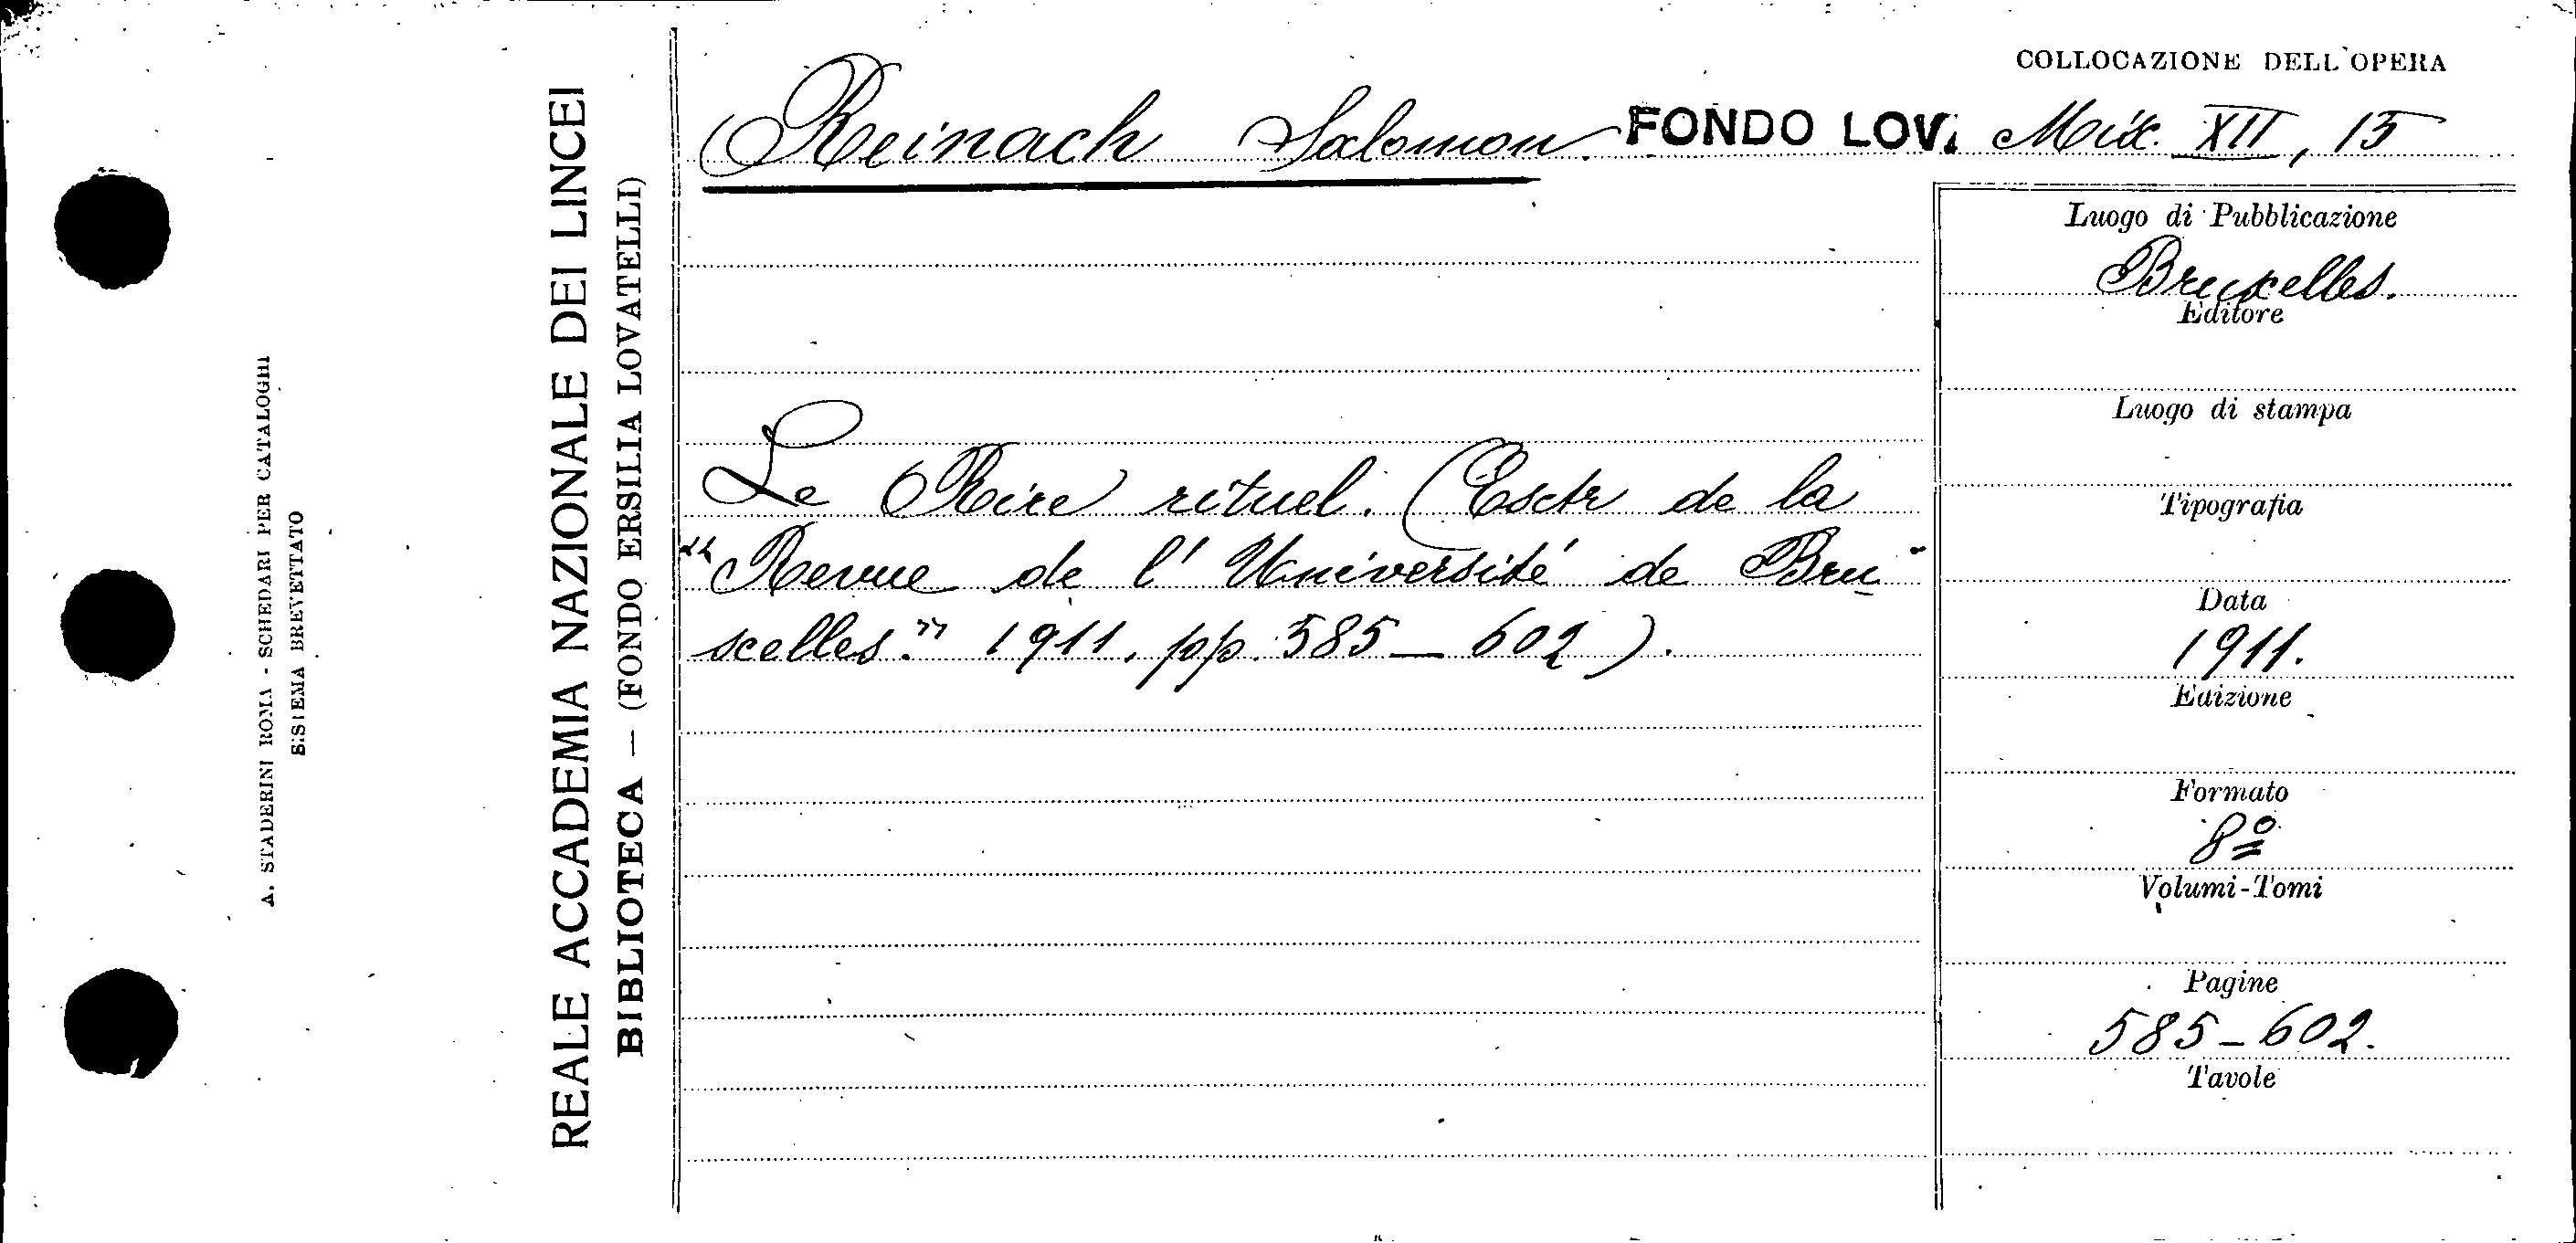 COLLOCAZIONE DELL'OPERA
Reinach Salomon. FONDO LOV. Misc. XII, 15
Le Rire rituel. (Extr de la
"Revue de l'Université de Bru-
xelles." 1911. pp. 585-602).
Luogo di Pubblicazione
Bruxelles.
Editore
Luogo di stampa
Tipografia
Data
1911.
Edizione
Formato
8º
Volumi-Tomi
Pagine
585-602.
Tavole
REALE ACCADEMIA NAZIONALE DEI LINCEI
BIBLIOTECA — (FONDO ERSILIA LOVATELLI)
A. STADERINI ROMA - SCHEDARI PER CATALOGHI
SISTEMA BREVETTATO